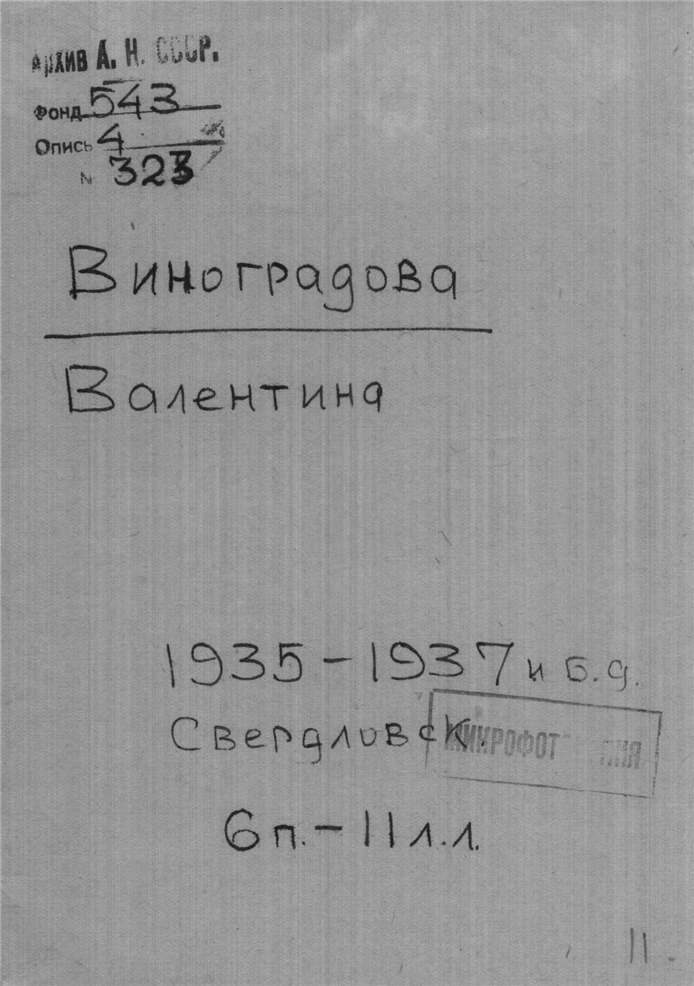 Архив А. Н. СССР.
Фонд 543
Опись 4
№ 323
Виноградова
Валентина
1935-1937 и б.д.
Свердловск.
6п.-11л.л.
11.